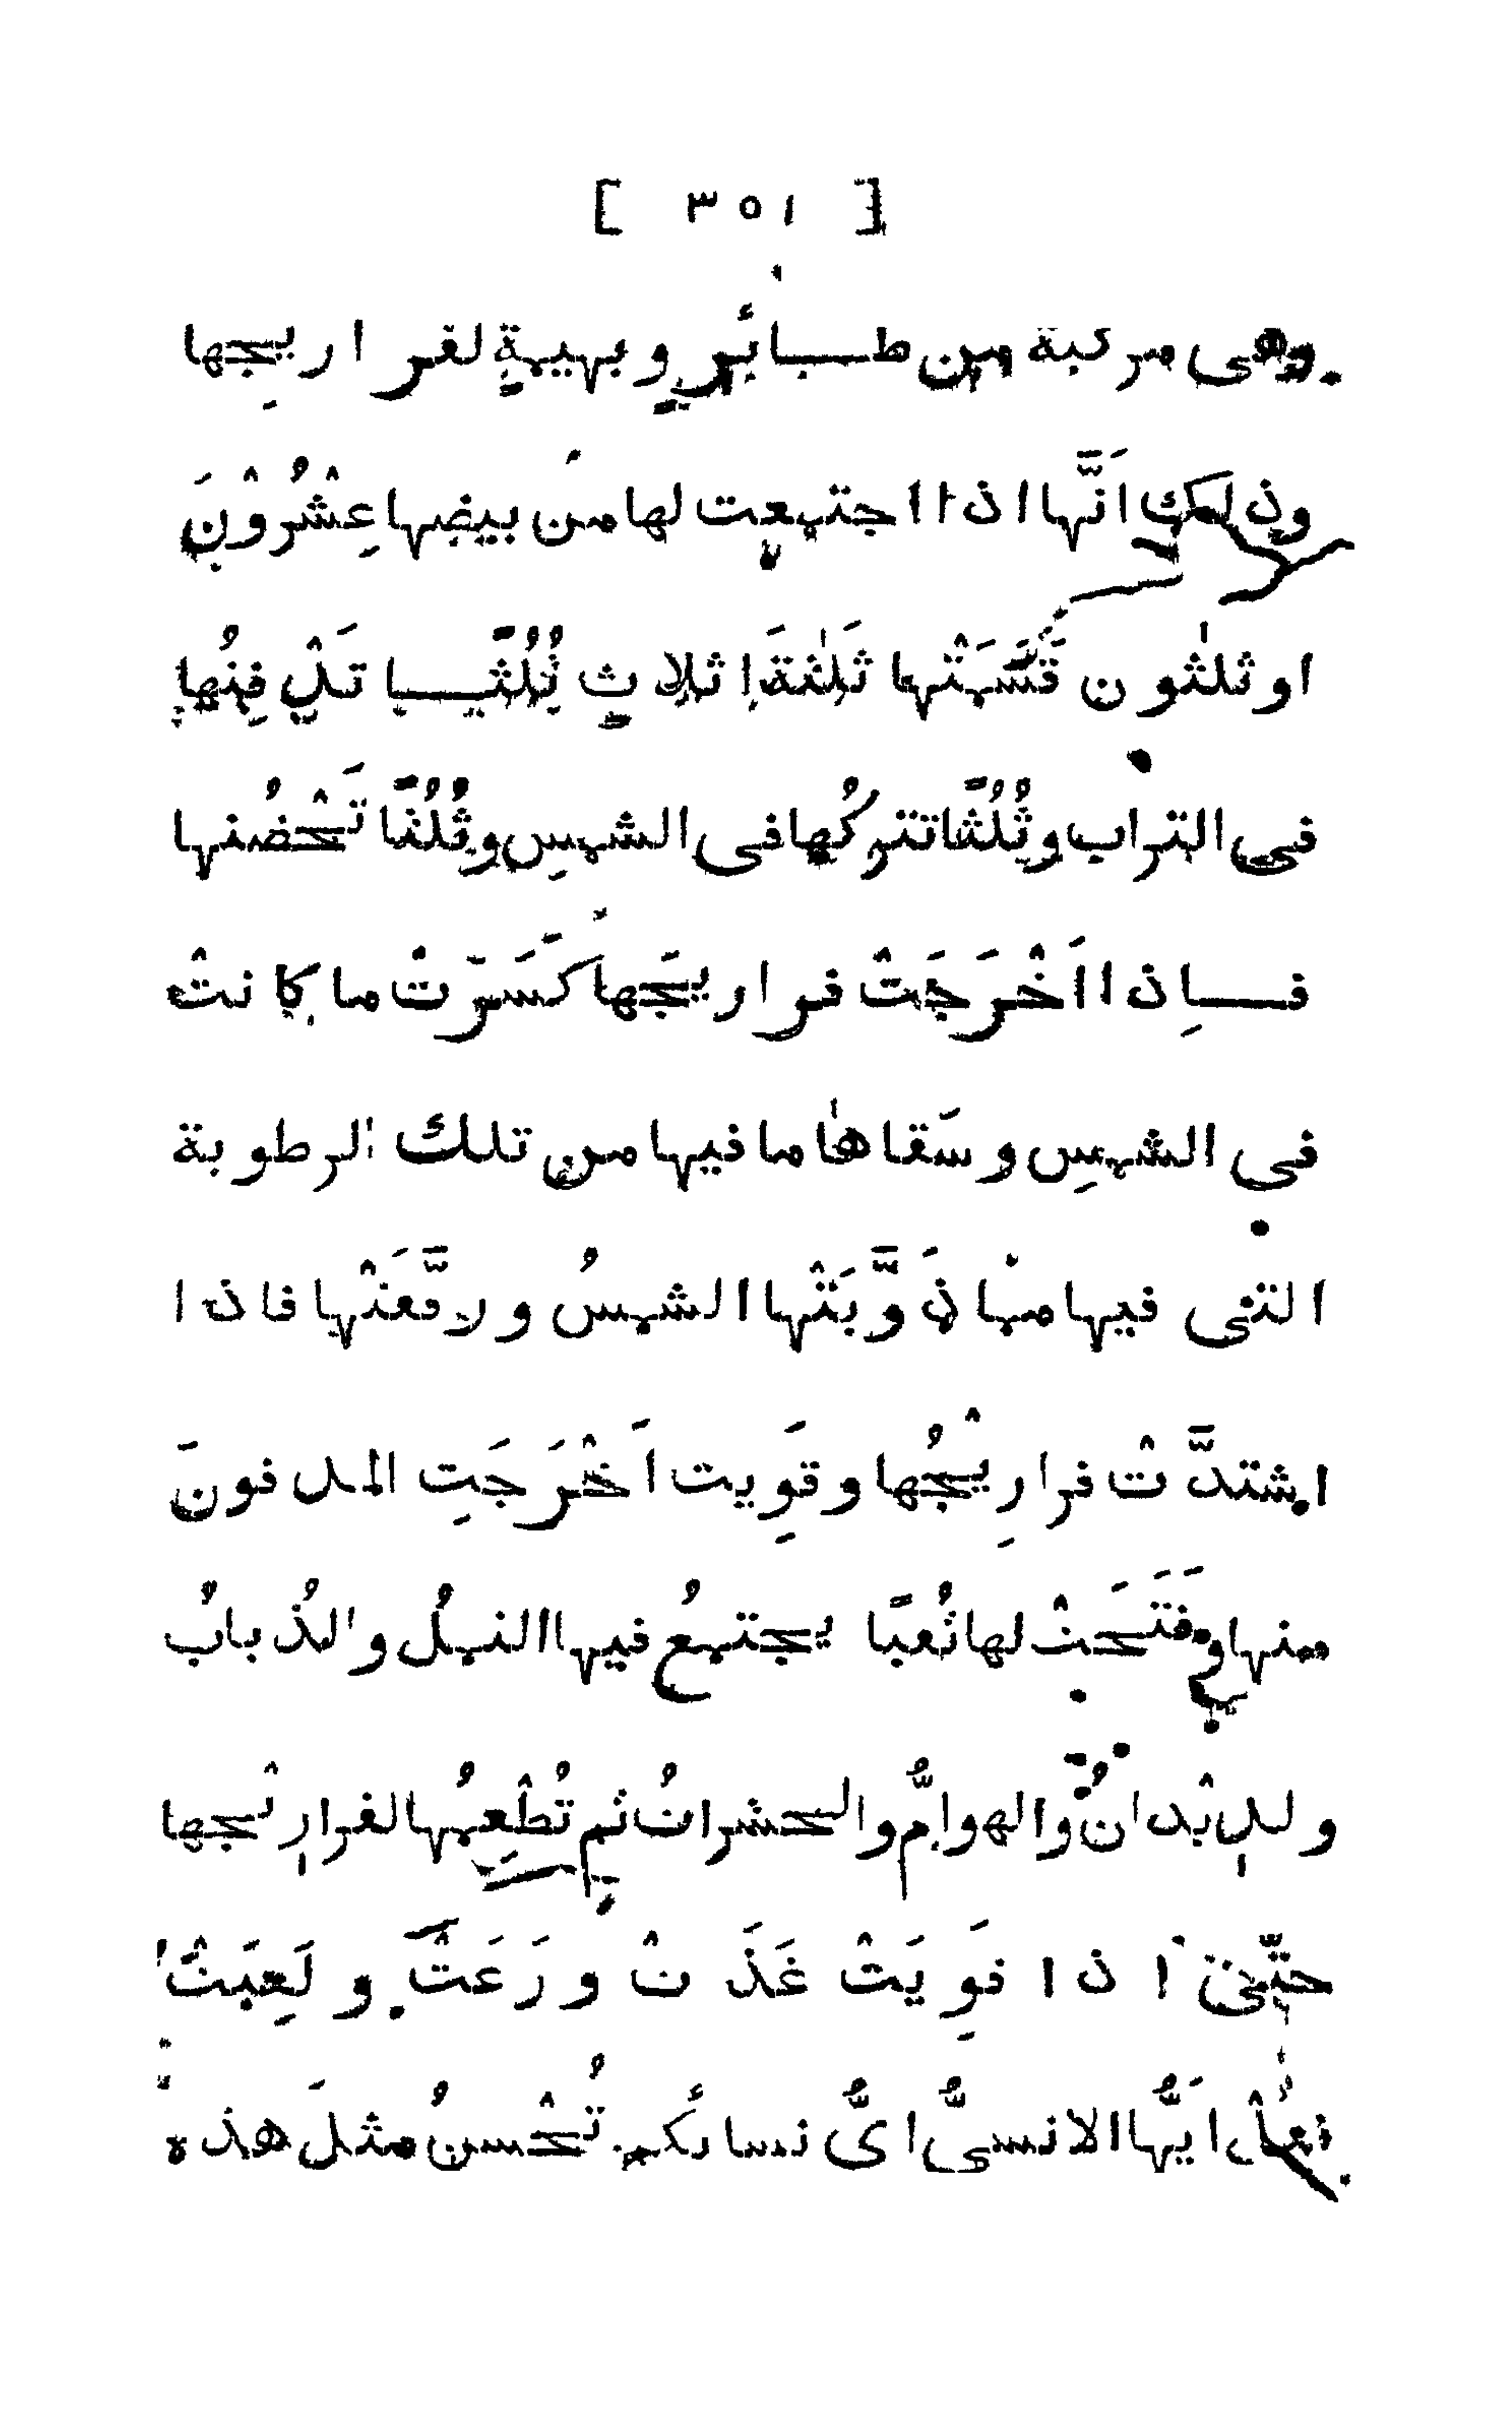 [ ٣٥١ ]
وهى مركبة من طــبائر وبهيمةٍ لفر اريجها
وذلك اَنَّها اذا اجتمعت لها من بيضها عِشْرُوْنَ
او ثلٰثون قَسَّمَتْها ثَلٰثَةَ اثلاثٍ ثُلُثًــا تَدْفِنُها
فى التراب وثُلُثًا تتركُها فى الشمس وثُلُثًا تَحْضُنها
فــاِذا اَخْرَجَتْ فراريجَها كَسَرَتْ ما كانتْ
فى الشمسِ وسَقاها ما فيها من تلك الرطوبة
التى فيها مما ذَوَّبَتْها الشمسُ ورقَّقَتْها فاذا
اشتدَّتْ فرارِيْجُها وقَوِيت اَخْرَجَتِ المدفونَ
منها وفَتَحَتْ لها ثُعبًا يجتمعُ فيها النملُ والذُبابُ
والدِيْدانُ والهوامُّ والحشراتُ ثم تُطْعِمُها لفرارِيْجها
حتّى اذا قَوِيَتْ غَذَتْ ورَعَتْ ولَعِبَتْ
فقُلْ اَيُّها الانسىُّ اىُّ نسائكم تُحْسنُ مثلَ هذه